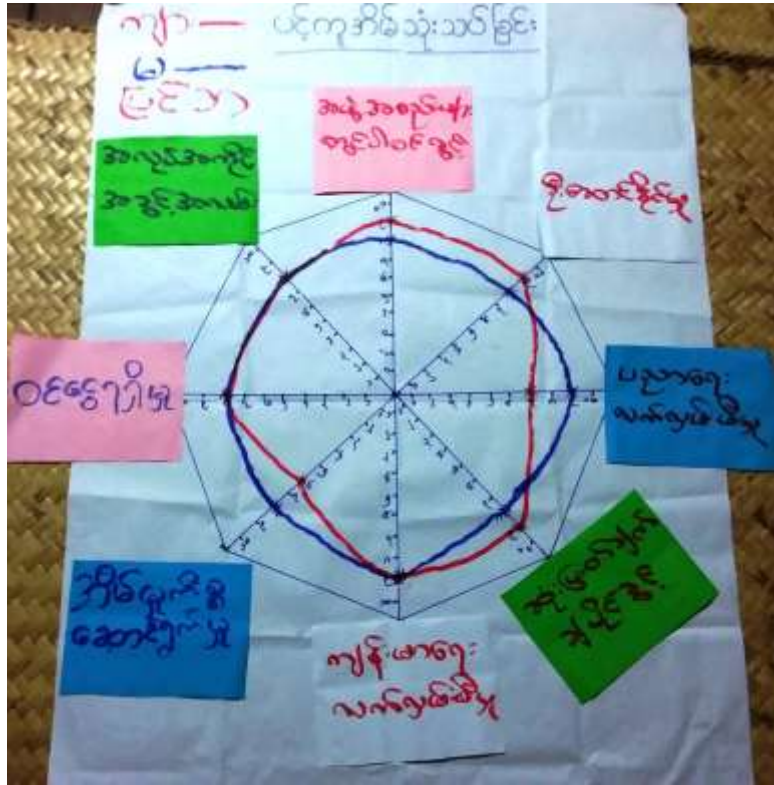 ကျား —
မ —
ပြင်သာ
ပင့်ကူအိမ်သုံးသပ်ခြင်း
အဖွဲ့အစည်းများ
တွင်ပါဝင်ခွင့်
အလုပ်အကိုင်
အခွင့်အလမ်း
ဦးဆောင်နိုင်မှု
ဝင်ငွေရရှိမှု
ပညာရေး
လက်လှမ်းမီမှု
အိမ်မှုကိစ္စ
ဆောင်ရွက်မှု
ဆုံးဖြတ်ချက်
ချပိုင်ခွင့်
ကျန်းမာရေး
လက်လှမ်းမီမှု